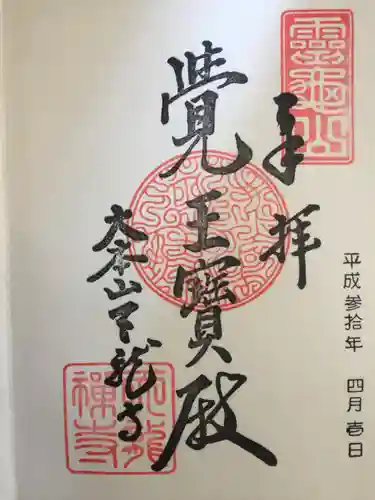 靈龜山
奉拝
平成参拾年 四月壱日
覺王寳殿
大本山天龍寺
天龍禅寺